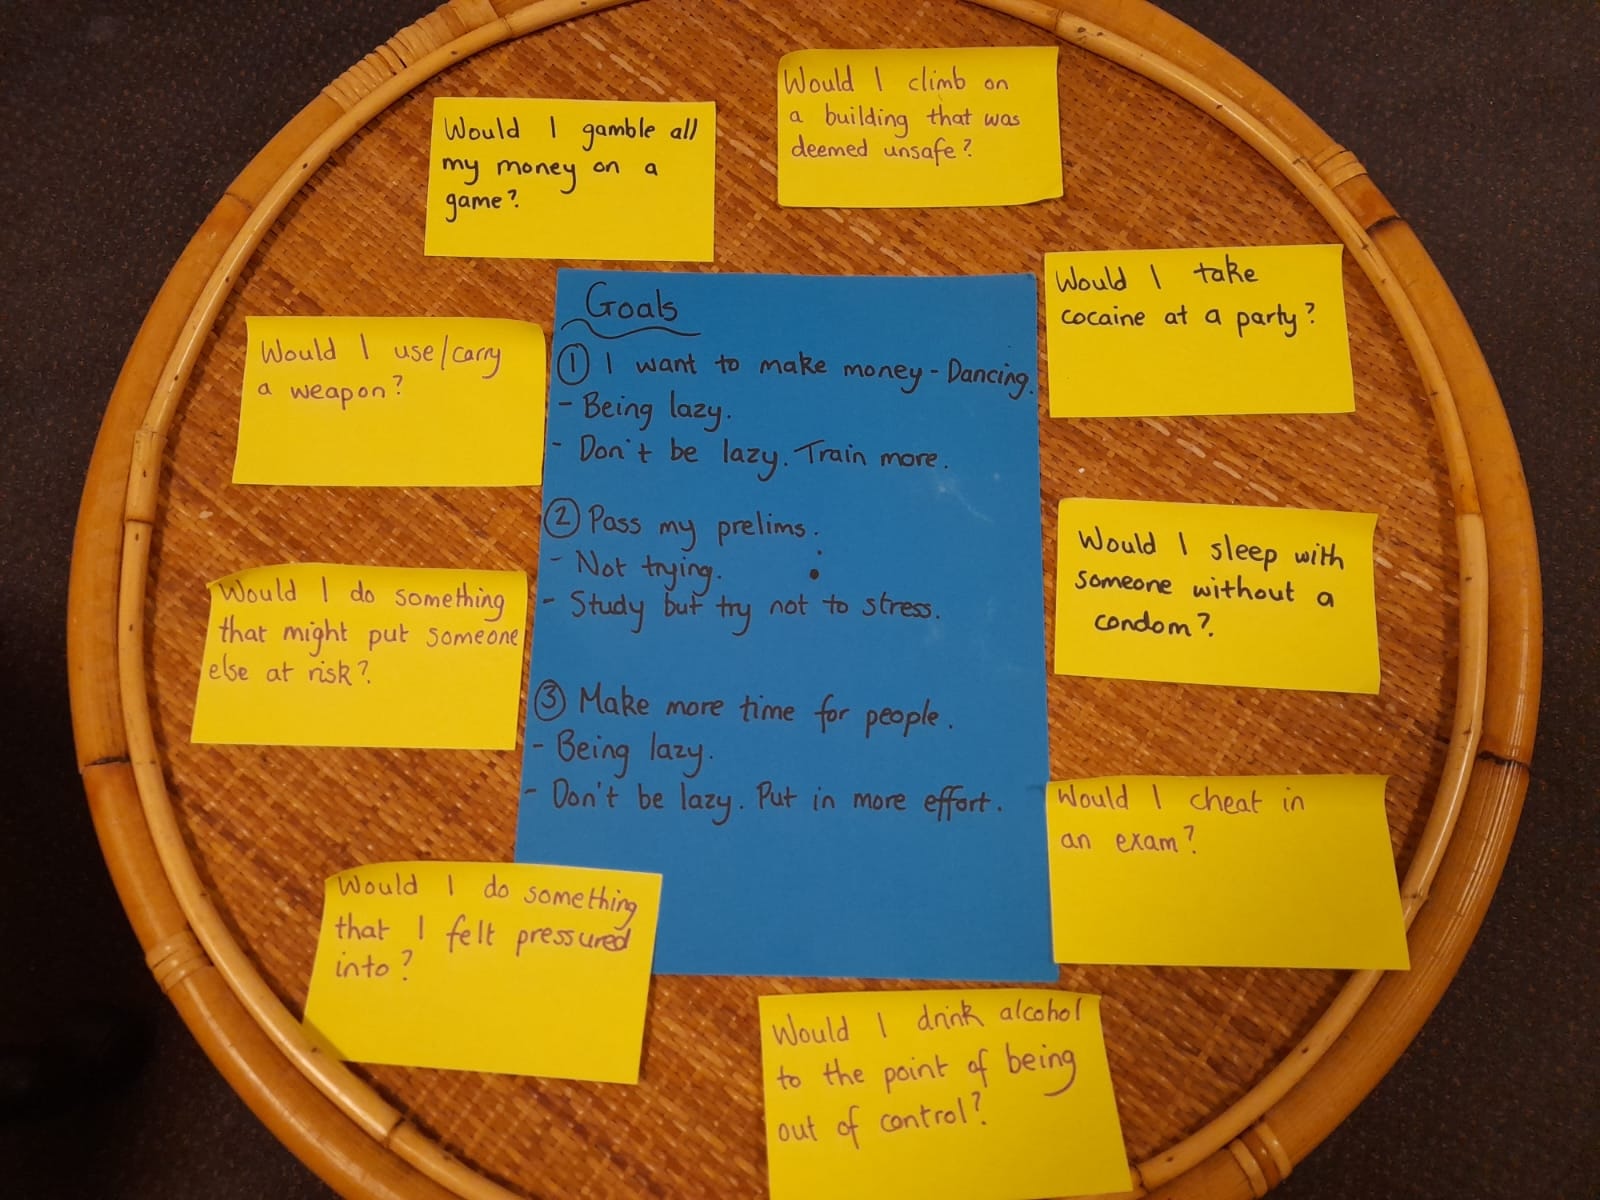 Would I climb on
a building that was
deemed unsafe?
Would I gamble all
my money on a
game?
Would I take
cocaine at a party?
Would I use/carry
a weapon?
Goals
① I want to make money - Dancing.
- Being lazy.
- Don't be lazy. Train more.
② Pass my prelims.
- Not trying.
- Study but try not to stress.
③ Make more time for people.
- Being lazy.
- Don't be lazy. Put in more effort.
Would I sleep with
someone without a
condom?
Would I do something
that might put someone
else at risk?
Would I cheat in
an exam?
Would I do something
that I felt pressured
into?
Would I drink alcohol
to the point of being
out of control?